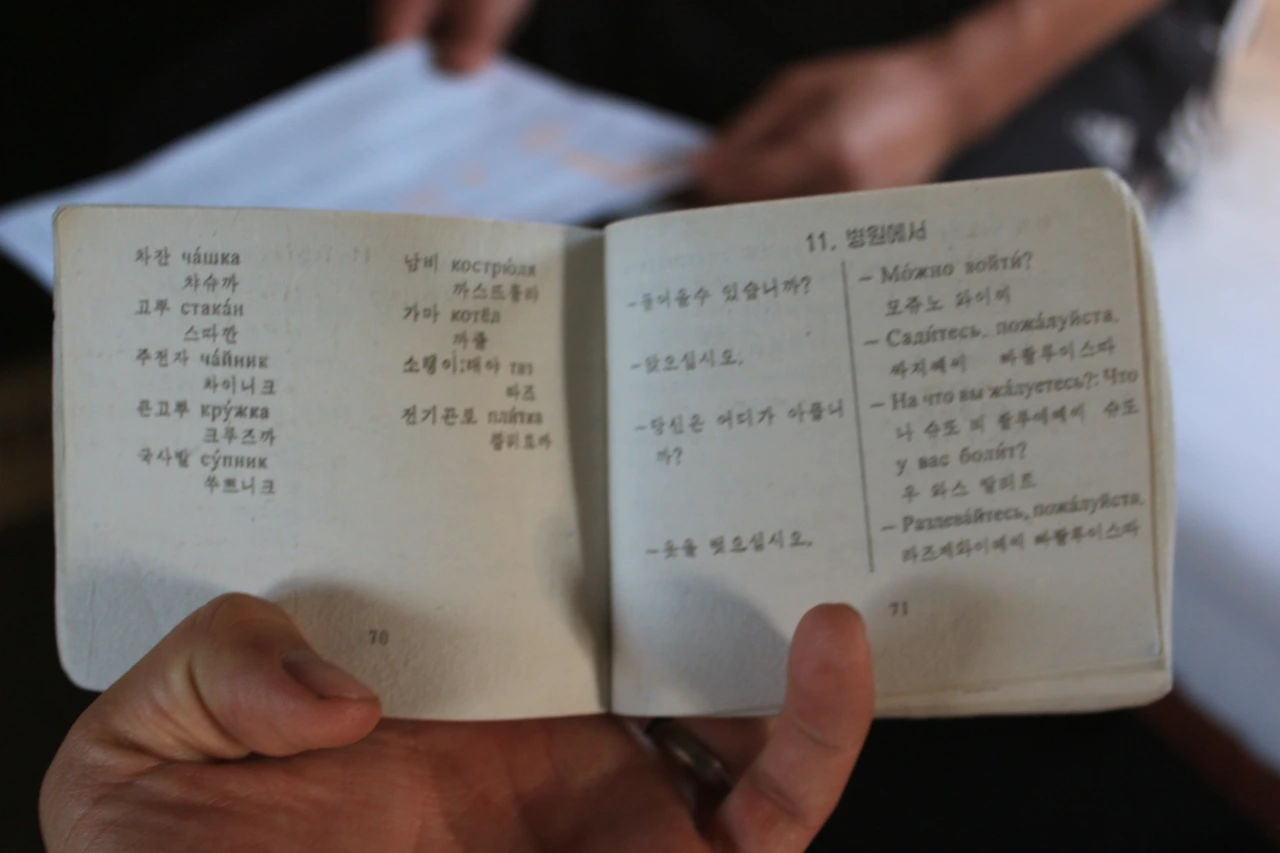 차잔 ча́шка
챠슈까
고뿌 стака́н
스따깐
주전자 ча́йник
차이니크
큰고뿌 кру́жка
크루즈까
국사발 су́пник
쑤쁘니크
남비 кострю́ля
까스뜨률라
가마 котёл
까쫄
소랭이;대야 таз
따즈
전기곤로 пли́тка
쁠리트까
70
11. 병원에서
–들어올수 있습니까?
– Мо́жно войти́?
모쥬노 와이찌
–앉으십시오.
– Сади́тесь, пожа́луйста.
싸지쩨씨 빠좔루이스따
–당신은 어디가 아픔니
까?
– На что вы жа́луетесь?: Что
나 슈또 븨 좔루예쩨씨 슈또
у вас боли́т?
우 와스 발리트
–옷을 벗으십시오.
– Разлева́йтесь, пожа́луйста.
라즈제와이쩨씨 빠좔루이스따
71